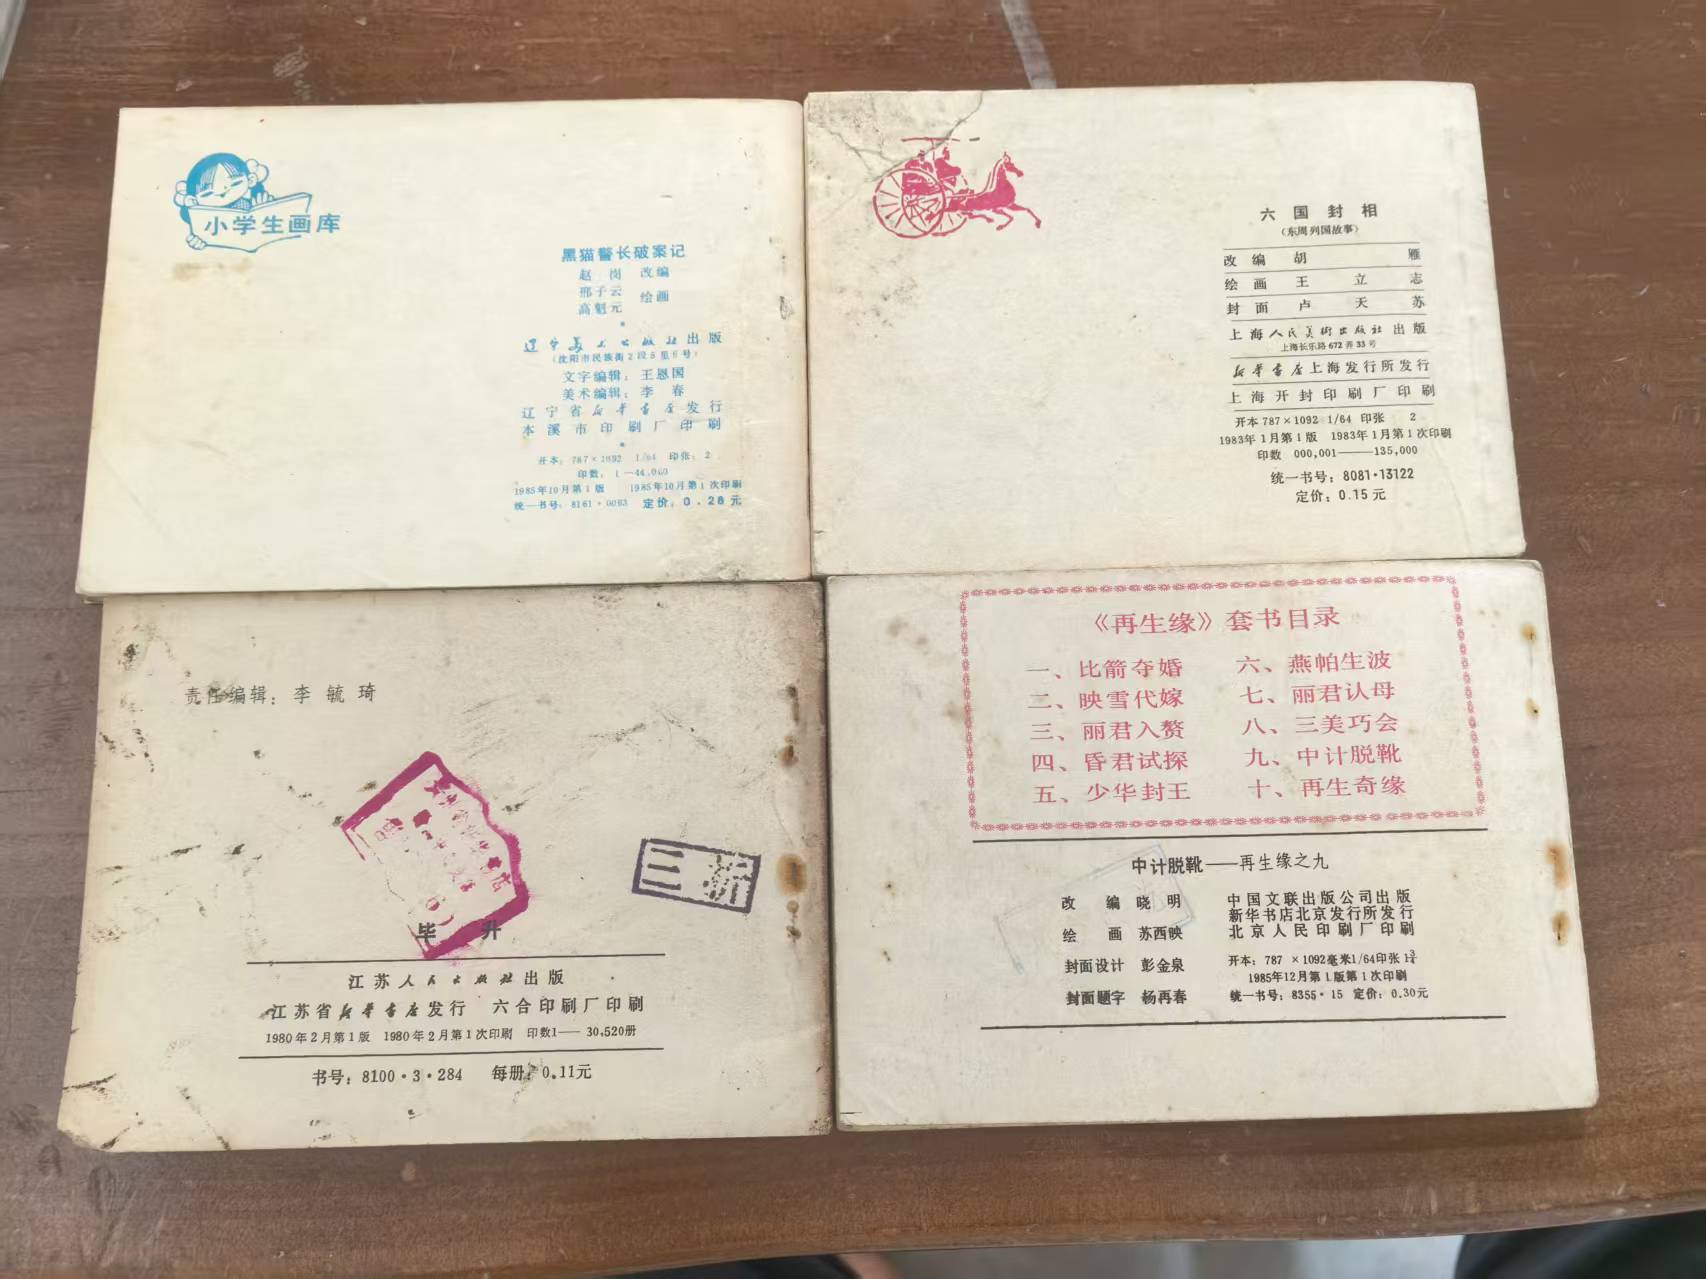 小学生画库
黑猫警长破案记
赵岗 改编
邢子云
高魁元 绘画
辽宁美术出版社出版
(沈阳市民族街2段5里6号)
文字编辑：王恩国
美术编辑：李春
辽宁省新华书店发行
本溪市印刷厂印刷
开本：787×1092 1/64 印张：2
印数：1—44,060
1985年10月第1版 1985年10月第1次印刷
统一书号：8161·0093 定价：0.26元
六国封相
(东周列国故事)
改编 胡雁
绘画 王立志
封面 卢天苏
上海人民美術出版社出版
上海长乐路672弄33号
新华书店上海发行所发行
上海开封印刷厂印刷
开本787×1092 1/64 印张 2
1983年1月第1版 1983年1月第1次印刷
印数 000,001——135,000
统一书号：8081·13122
定价：0.15元
责任编辑：李毓琦
三新
毕升
江苏人民出版社出版
江苏省新华书店发行 六合印刷厂印刷
1980年2月第1版 1980年2月第1次印刷 印数1—30,520册
书号：8100·3·284 每册：0.11元
《再生缘》套书目录
一、比箭夺婚 六、燕帕生波
二、映雪代嫁 七、丽君认母
三、丽君入赘 八、三美巧会
四、昏君试探 九、中计脱靴
五、少华封王 十、再生奇缘
中计脱靴——再生缘之九
改编 晓明
绘画 苏西映
封面设计 彭金泉
封面题字 杨再春
中国文联出版公司出版
新华书店北京发行所发行
北京人民印刷厂印刷
开本：787×1092毫米1/64印张1¾
1985年12月第1版第1次印刷
统一书号：8355·15 定价：0.30元